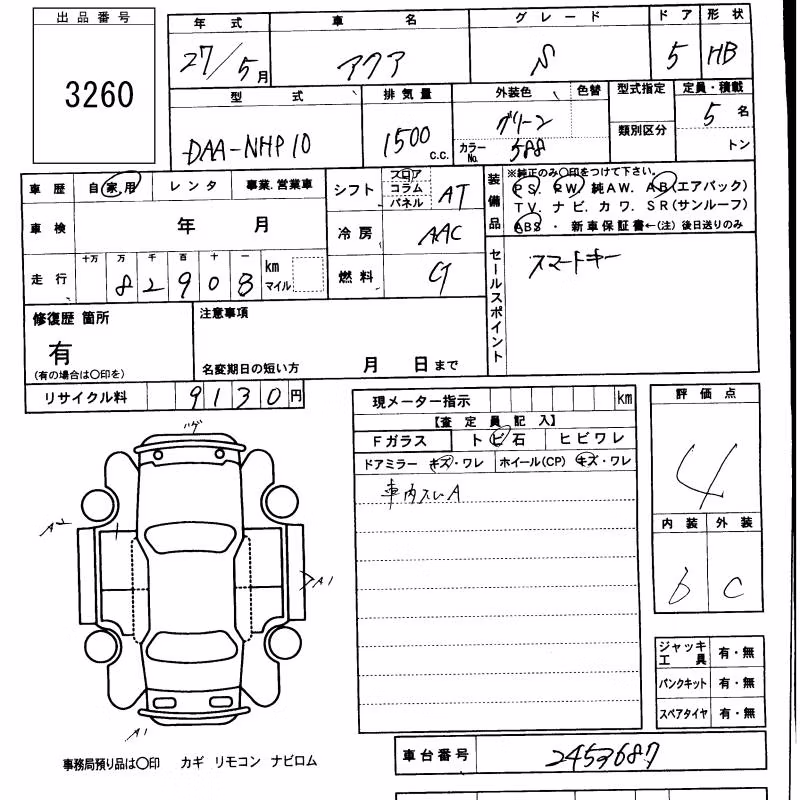 出品番号
3260
年式 車名 グレード ドア 形状
27/5月 アクア S 5 HB
型式 排気量 外装色 色替 型式指定 定員・積載
DAA-NHP10 1500 c.c. グリーン カラーNo. 588 類別区分 5名 トン
車歴 自家用 レンタ 事業.営業車
シフト フロア コラム パネル AT
装備品 ※純正のみ○印をつけて下さい。
PS. PW. 純AW. AB(エアバック)
TV. ナビ. カワ. SR(サンルーフ)
ABS ・ 新車保証書←(注) 後日送りのみ
車検 年 月
冷房 AAC
走行 十万 万 千 百 十 一
82908 km マイル
燃料 G
セールスポイント スマートキー
修復歴 箇所
有
(有の場合は○印を)
注意事項
名変期日の短い方 月 日まで
リサイクル料 9130円
現メーター指示 km
【査定員記入】
Fガラス トビ石 ヒビワレ
ドアミラー キズ・ワレ ホイール(CP) キズ・ワレ
車内スレA
評価点
4
内装 外装
b C
ハゲ
A2
A1
A1
ジャッキ工具 有・無
パンクキット 有・無
スペアタイヤ 有・無
事務局預り品は○印 カギ リモコン ナビロム
車台番号 2453687